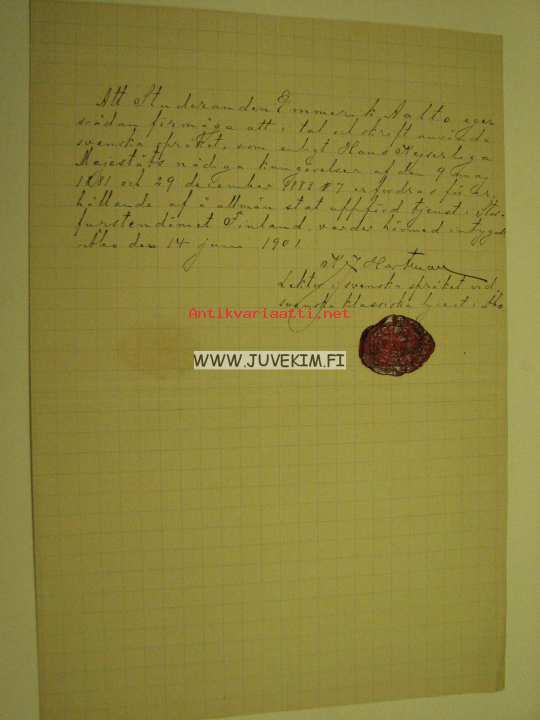 Att Studeranden Emmerik Aalto eger
sådan förmåga att i tal och skrift använda
svenska språket, som enligt Hans Kejserliga
Majestäts nådiga kungörelser af den 9 maj
1881 och 29 december 1887 erfordras för er-
hållande af å allmän stat uppförd tjenst i Stor-
furstendömet Finland, varder härmed intygadt.
Åbo den 14 juni 1901.
Hartman
Lektor i svenska språket vid
svenska klassiska lyceet i Åbo
Antikvariaatti.net
WWW.JUVEKIM.FI